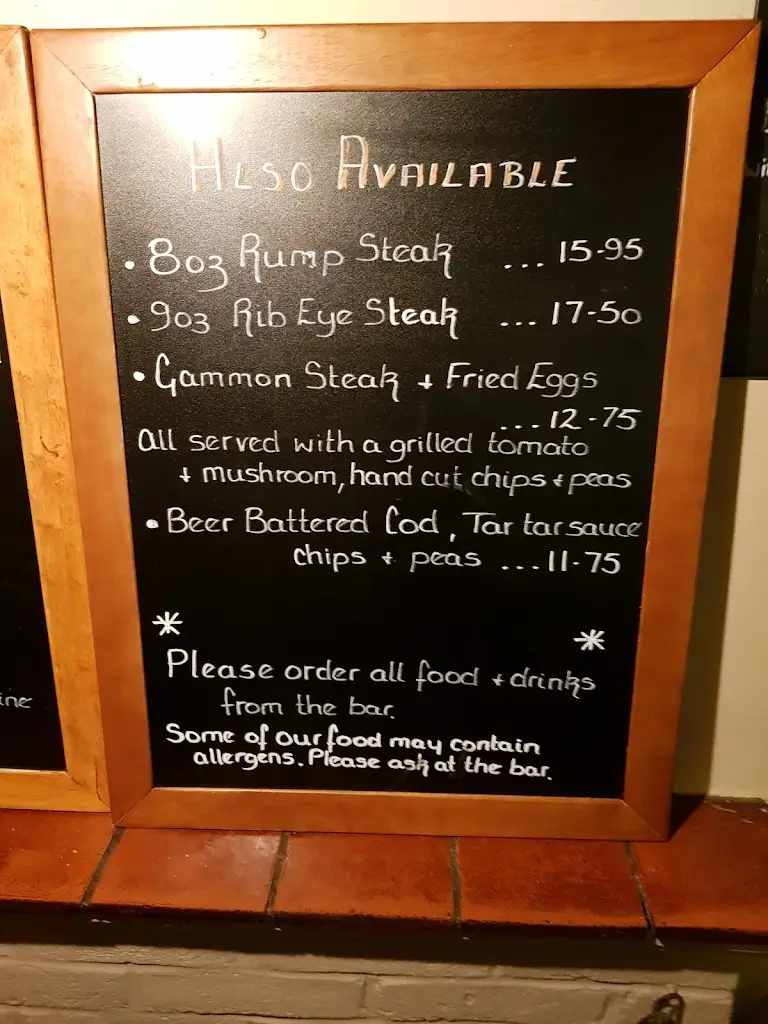 ALSO AVAILABLE
• 8oz Rump Steak ... 15-95
• 9oz Rib Eye Steak ... 17-50
• Gammon Steak + Fried Eggs
... 12-75
All served with a grilled tomato
+ mushroom, hand cut chips + peas
• Beer Battered Cod, Tar tar sauce
chips + peas ... 11-75
* *
Please order all food + drinks
from the bar.
Some of our food may contain
allergens. Please ask at the bar.